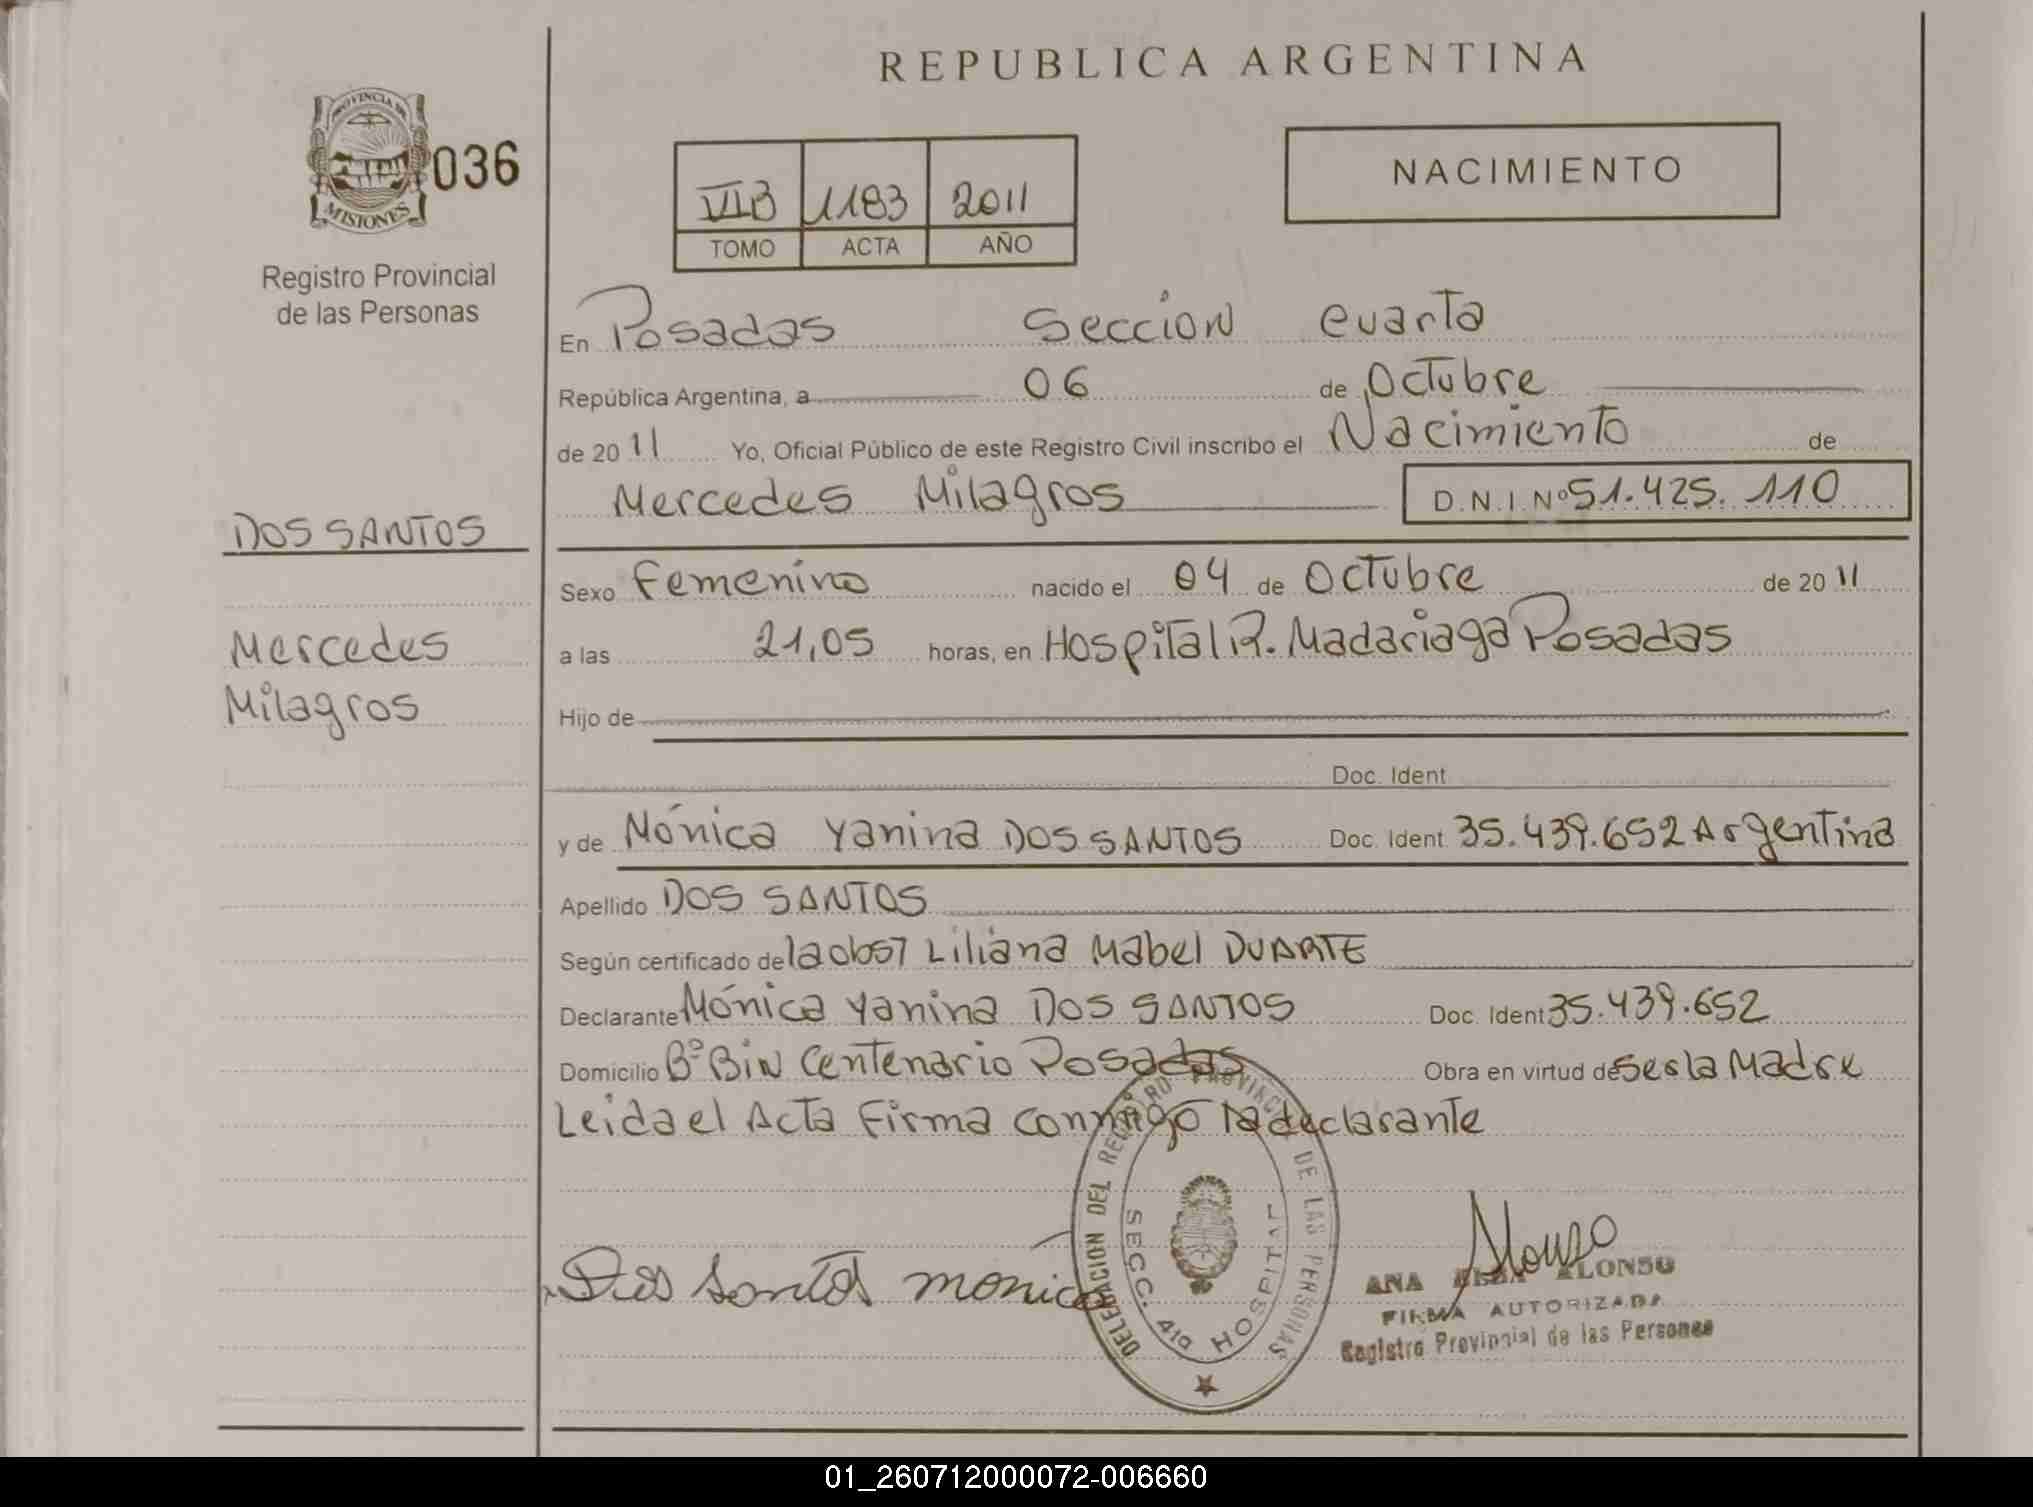 REPUBLICA ARGENTINA
PROVINCIA DE
MISIONES
036
Registro Provincial
de las Personas
NACIMIENTO
VIB 1183 2011
TOMO ACTA AÑO
En Posadas Seccion Cuarta
República Argentina, a 06 de Octubre
de 2011 Yo, Oficial Público de este Registro Civil inscribo el Nacimiento de
Mercedes Milagros D.N.I. Nº 51.425.110
DOS SANTOS
Mercedes
Milagros
Sexo Femenino nacido el 04 de Octubre de 2011
a las 21,05 horas, en Hospital R. Madariaga Posadas
Hijo de
Doc. Ident
y de Mónica Yanina DOS SANTOS Doc. Ident 35.439.652 Argentina
Apellido DOS SANTOS
Según certificado de la obst Liliana Mabel DUARTE
Declarante Mónica Yanina DOS SANTOS Doc. Ident 35.439.652
Domicilio Bº Bin Centenario Posadas Obra en virtud de ser la Madre
Leida el Acta Firma conmigo la declarante
Dos Santos monica
DELEGACION DEL REGISTRO PROVINCIAL DE LAS PERSONAS
SECC. 4ta HOSPITAL
Alonso
ANA ELBA ALONSO
FIRMA AUTORIZADA
Registro Provincial de las Personas
01_260712000072-006660